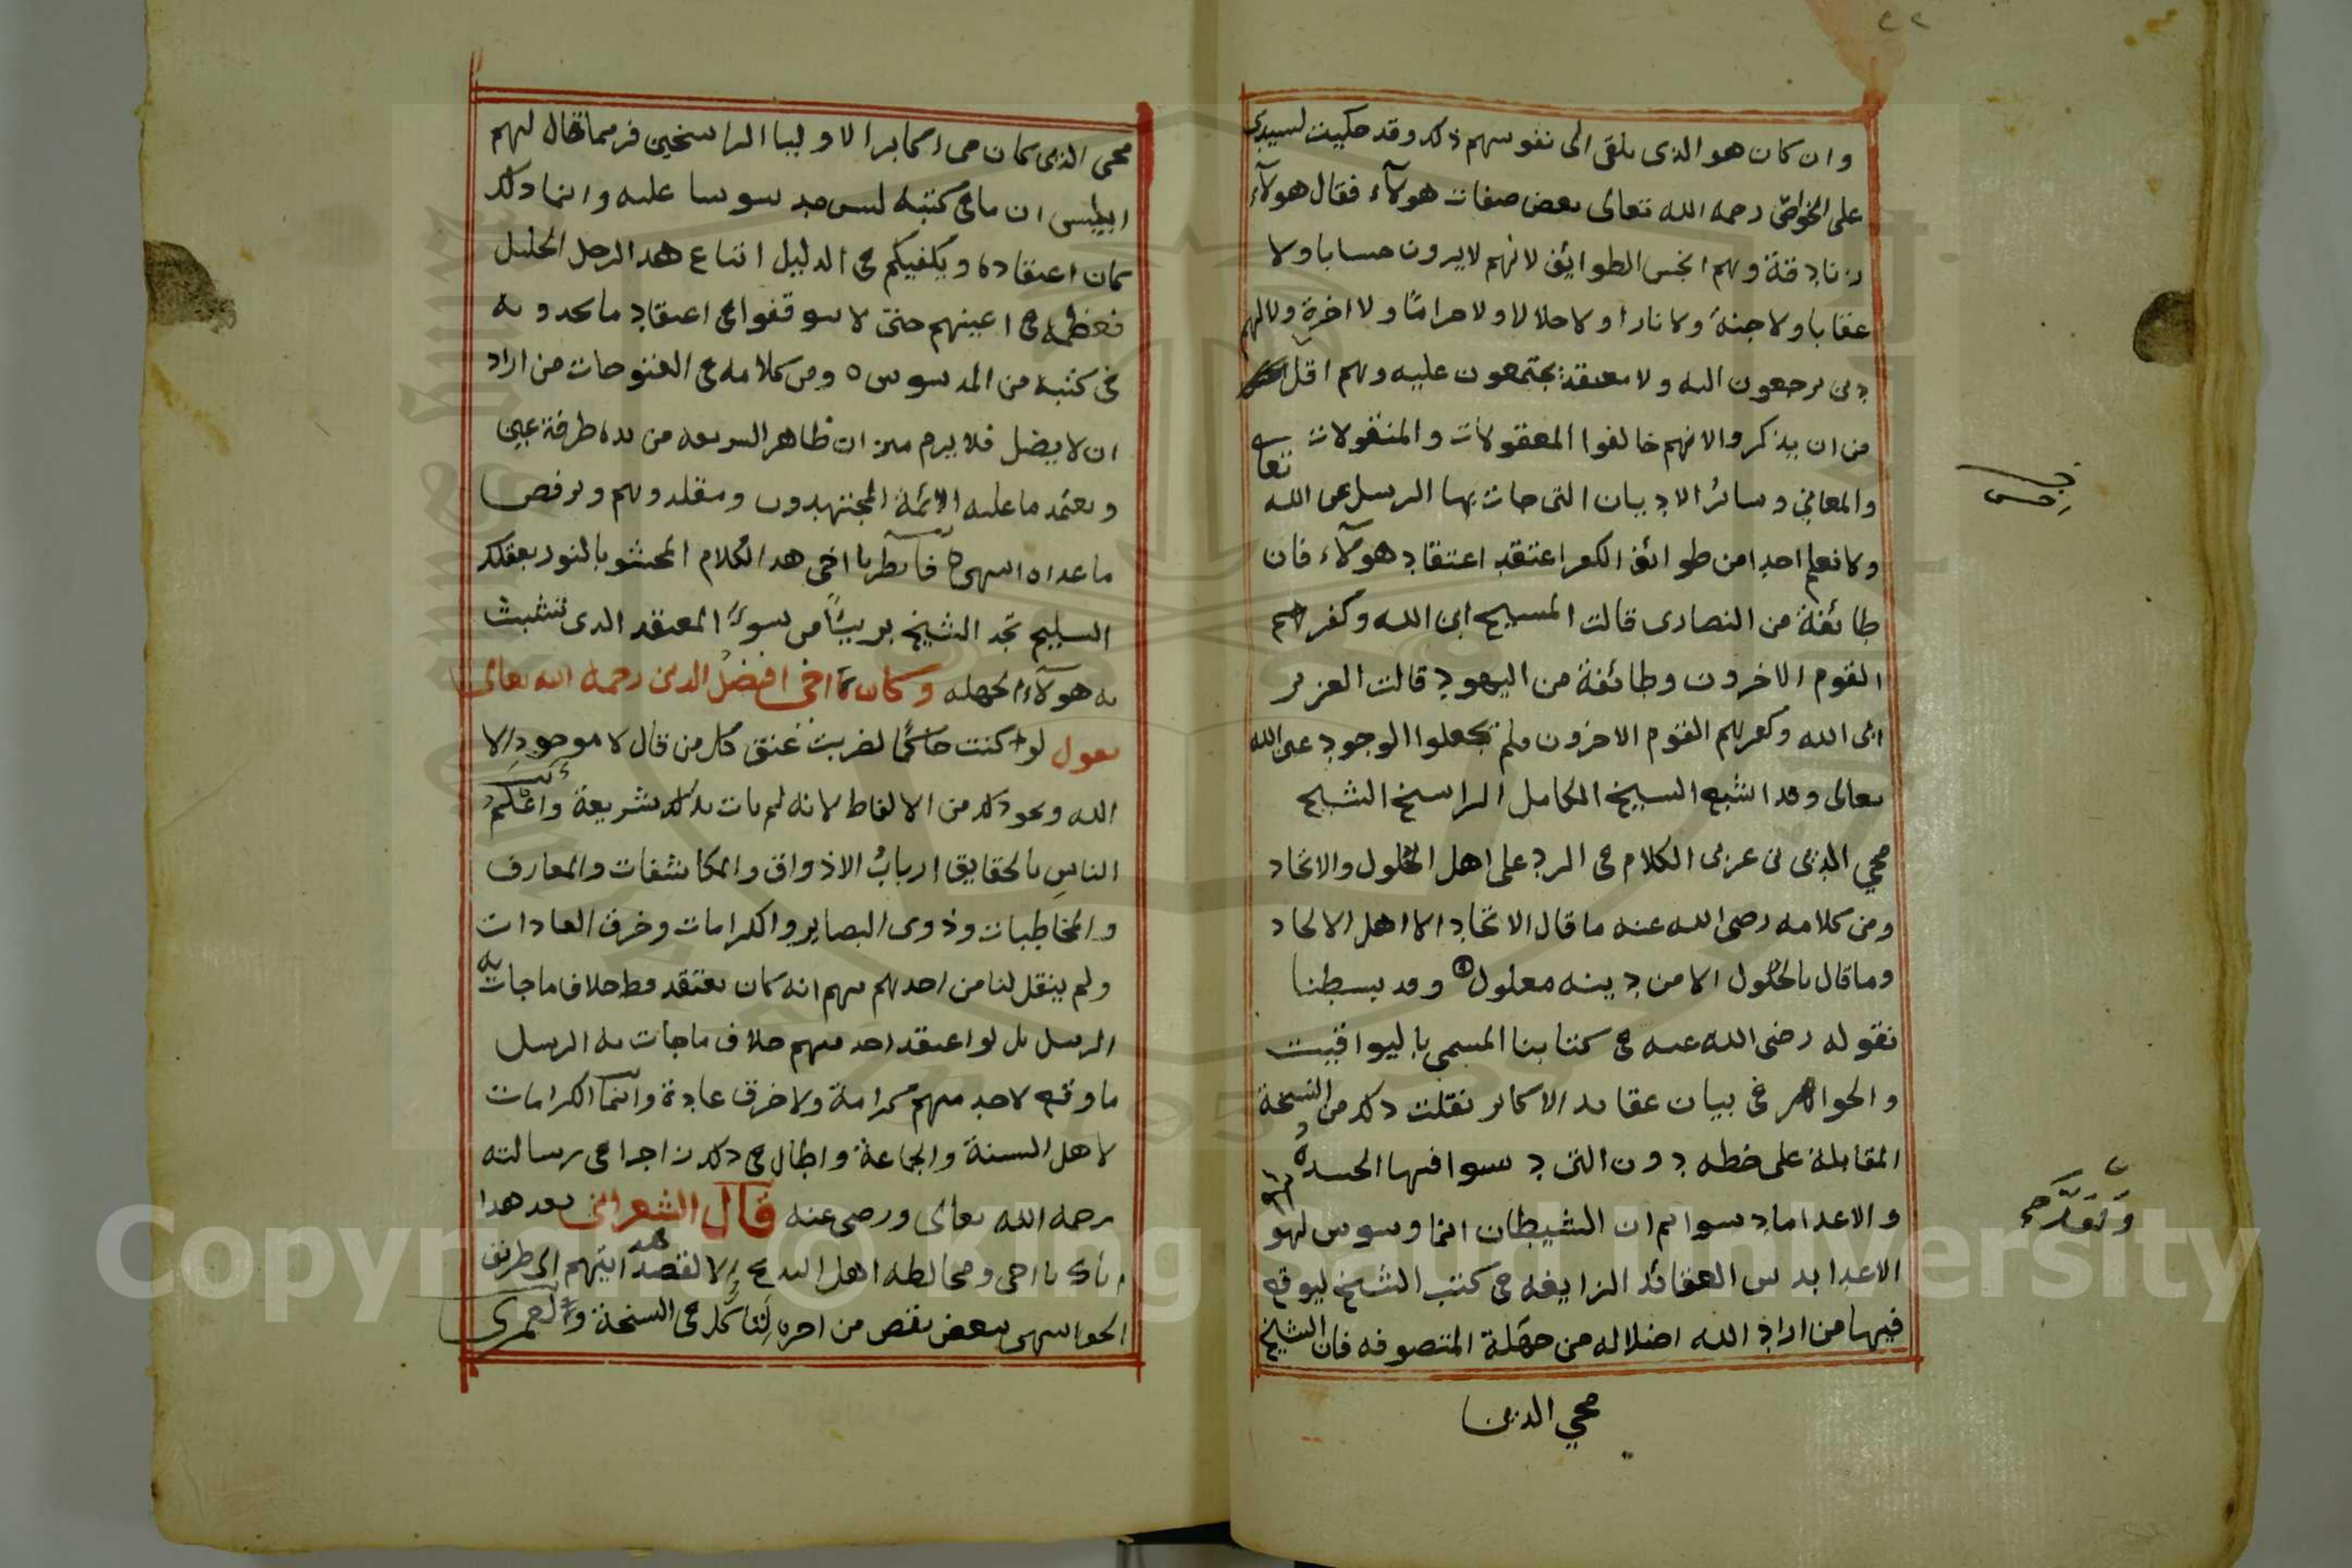 ٢٢
وان كان هو الذى يلقى الى نفوسهم ذلك وقد حكيت لسيدى
على الخواص رحمه الله تعالى بعض صفات هولآء فقال هولآء
زنادقة وهم انجس الطوايف لانهم لا يرون حسابا ولا
عقابا ولا جنة ولا نارا ولا حلالا ولا حراما ولا اخرة ولا لهم
دين يرجعون اليه ولا معتقد يجتمعون عليه وهم اقل
من ان يذكروا لانهم خالفوا المعقولات والمنقولات
والمعانى وسائر الاديان التى جات بها الرسل عن الله تعالى
ولا نعلم احدا من طوائف الكفر اعتقد اعتقاد هولآء فان
طائفة من النصارى قالت المسيح ابن الله وكفرهم
القوم الاخرون وطائفة من اليهود قالت العزير
ابن الله وكفرهم القوم الاخرون ولم تجعلوا الوجود عين الله
تعالى وقد اشبع الشيخ الكامل الراسخ الشيخ
محي الدين بن عربى الكلام فى الرد على اهل الحلول والاتحاد
ومن كلامه رضى الله عنه ما قال الاتحاد الا اهل الالحاد
وما قال بالحلول الا من دينه معلول وقد بسطنا
نقوله رضى الله عنه فى كتابنا المسمى باليواقيت
والجواهر فى بيان عقايد الاكابر نقلت ذلك من النسخة
المقابلة على خطه دون التى دسوا فيها الحسدة
والاعدا ما دسوا ثم ان الشيطان انما وسوس لهو
الاعدا بدس العقائد الزايغه فى كتب الشيخ ليوقع
فيها من اراد الله اضلاله من جهلة المتصوفه فان الشيخ
محي الدين
محى الدين كان من اكابر الاوليا الراسخين فربما قال لهم
ابليس ان ما فى كتبه ليس مدسوسا عليه وانما ذلك
كان اعتقاده ويكفيكم فى الدليل اتباع هذا الرجل الجليل
فعظمه فى اعينهم حتى لا يتوقفوا فى اعتقاد ما يجدونه
فى كتبه من المدسوس ٥ ومن كلامه فى الفتوحات من اراد
ان لا يضل فلا يرم ميزان ظاهر الشريعه من يده طرفة عين
ويعتمد ما عليه الائمة المجتهدون ومقلدوهم ويرفض
ما عداه انتهى فانظر يا اخى هذا الكلام المحشو بالنور بعقلك
السليم تجد الشيخ بريئا من سوء المعتقد الذى تشبث
به هولآء الجهله وكان اخى افضل الدين رحمه الله تعالى
يقول لو كنت حاكما لضربت عنق كل من قال لا موجود الا
الله ونحو ذلك من الالفاظ لانه لم يات بذلك شريعة واعلم
الناس بالحقايق ارباب الاذواق والمكاشفات والمعارف
والمخاطبات وذوى البصاير والكرامات وخرق العادات
ولم ينقل لنا من احدهم منهم انه كان يعتقد قط خلاف ما جات به
الرسل بل لو اعتقد احد منهم خلاف ما جات به الرسل
ما وقع لاحد منهم كرامة ولا خرق عادة وانما الكرامات
لاهل السنة والجماعة واطال فى ذلك فى رسالته
رحمه الله تعالى ورضى عنه قال الشعرانى بعد هذا
اياك يا اخى ومخالطه اهل البدع الا لقصد هدايتهم الى طريق
الحق انتهى ببعض نقص من اخره فى النسخة